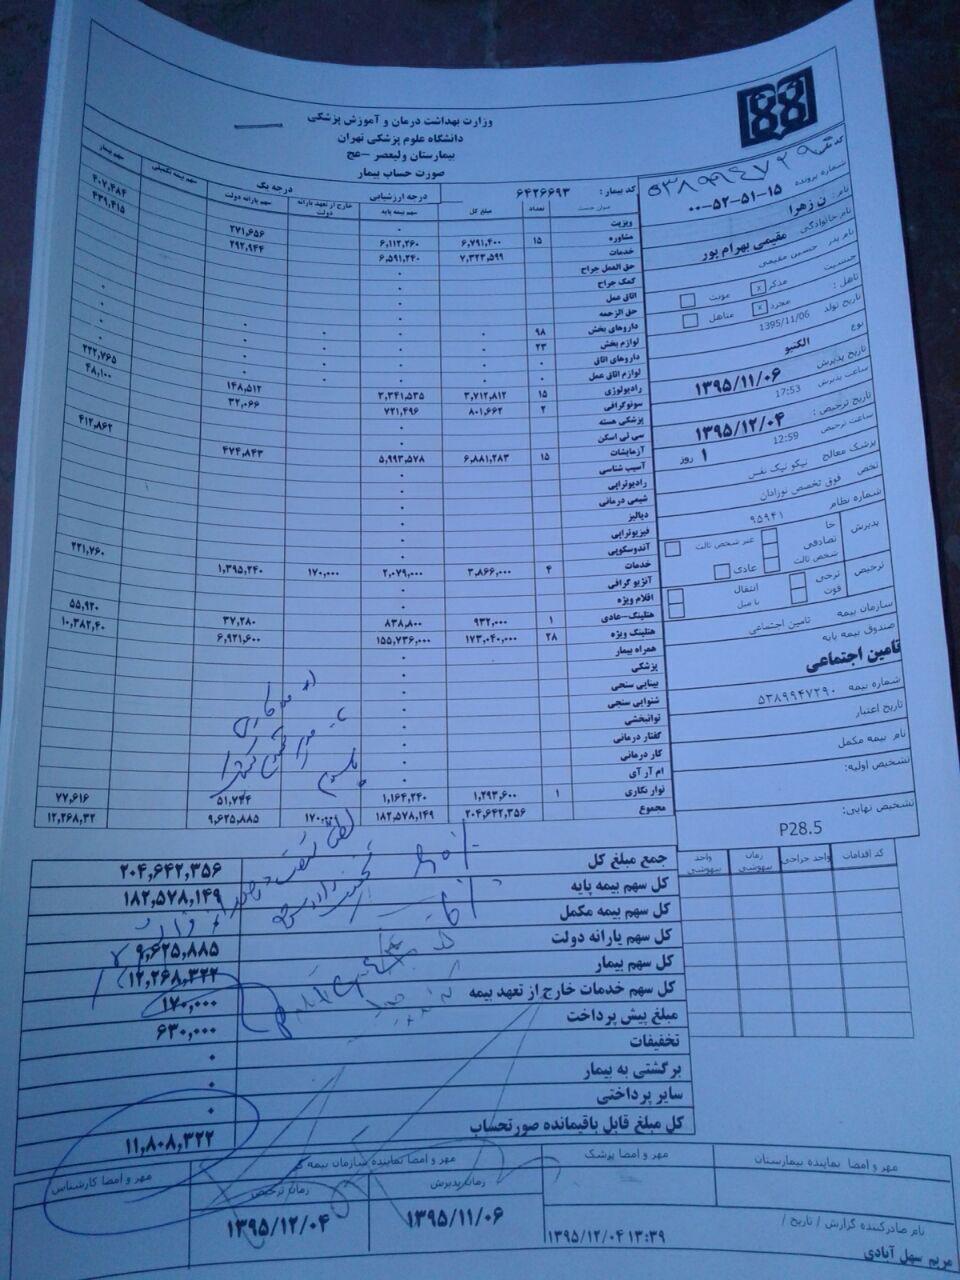 وزارت بهداشت درمان و آموزش پزشکی
دانشگاه علوم پزشکی تهران
بیمارستان ولیعصر -عج
صورت حساب بیمار
کد ملی ۵۳۸۹۹۴۷۲۹
شماره پرونده ۰۰-۵۲-۵۱-۱۵
نام: ن زهرا
نام خانوادگی مقیمی بهرام پور
نام پدر حسین مقیمی
جنسیت مذکر x مونث
تاهل: مجرد x متاهل
تاریخ تولد 1395/11/06
نوع الکتیو
تاریخ پذیرش ۱۳۹۵/۱۱/۰۶
ساعت پذیرش 17:53
تاریخ ترخیص: ۱۳۹۵/۱۲/۰۴
ساعت ترخیص 12:59
۱ روز
پزشک معالج نیکو نیک نفس
تخص فوق تخصص نوزادان
شماره نظام ۹۵۹۴۱
پذیرش تصادفی غیر شخص ثالث
شخص ثالث عادی
ترخیص فوت انتقال
با میل
سازمان بیمه تامین اجتماعی
صندوق بیمه پایه
تامین اجتماعی
شماره بیمه ۵۳۸۹۹۴۷۲۹۰
تاریخ اعتبار
نام بیمه مکمل
تشخیص اولیه:
تشخیص نهایی:
P28.5
کد بیمار: ۶۴۲۶۶۹۳ درجه ارزشیابی درجه یک سهم بیمه تکمیلی سهم بیمار
تعداد مبلغ کل سهم بیمه پایه خارج از تعهد یارانه دولت سهم یارانه دولت
ویزیت ۰
مشاوره ۱۵ ۶,۷۹۱,۴۰۰ ۶,۱۱۲,۲۶۰ ۲۷۱,۶۵۶ ۴۰۷,۴۸۴
خدمات ۷,۳۲۳,۵۹۹ ۶,۵۹۱,۲۴۰ ۲۹۲,۹۴۴ ۴۳۹,۴۱۵
حق العمل جراح ۰
کمک جراح ۰
اتاق عمل ۰
حق الزحمه ۰
داروهای بخش ۹۸ ۰ ۰ ۰ ۰ ۰
لوازم بخش ۲۳ ۰ ۰ ۰ ۰ ۰
داروهای اتاق ۰ ۰ ۰ ۰ ۰ ۰
لوازم اتاق عمل ۰ ۰ ۰ ۰ ۰ ۰
رادیولوژی ۱۵ ۳,۷۱۲,۸۱۲ ۳,۳۴۱,۵۳۵ ۱۴۸,۵۱۲ ۲۲۲,۷۶۵
سونوگرافی ۲ ۸۰۱,۶۶۲ ۷۲۱,۴۹۶ ۳۲,۰۶۶ ۴۸,۱۰۰
پزشکی هسته ۰
سی تی اسکن ۰
آزمایشات ۱۵ ۶,۸۸۱,۲۸۳ ۵,۹۹۳,۵۷۸ ۴۷۴,۸۴۳ ۴۱۲,۸۶۲
آسیب شناسی ۰
رادیوتراپی ۰
شیمی درمانی ۰
دیالیز ۰
فیزیوتراپی ۰
آندوسکوپی ۰
خدمات ۴ ۳,۸۶۶,۰۰۰ ۲,۰۷۹,۰۰۰ ۱۷۰,۰۰۰ ۱,۳۹۵,۲۴۰ ۲۲۱,۷۶۰
آنژیو گرافی ۰
اقلام ویژه ۰
هتلینگ-عادی ۱ ۹۳۲,۰۰۰ ۸۳۸,۸۰۰ ۳۷,۲۸۰ ۵۵,۹۲۰
هتلینگ ویژه ۲۸ ۱۷۳,۰۴۰,۰۰۰ ۱۵۵,۷۳۶,۰۰۰ ۶,۹۲۱,۶۰۰ ۱۰,۳۸۲,۴۰
همراه بیمار ۰
پزشکی ۰
بینایی سنجی ۰
شنوایی سنجی ۰
توانبخشی ۰
گفتار درمانی ۰
کار درمانی ۰
ام آر آی ۰
نوار نگاری ۱ ۱,۲۹۳,۶۰۰ ۱,۱۶۴,۲۴۰ ۵۱,۷۴۴ ۷۷,۶۱۶
مجموع ۲۰۴,۶۴۲,۳۵۶ ۱۸۲,۵۷۸,۱۴۹ ۱۷۰,۰۰۰ ۹,۶۲۵,۸۸۵ ۱۲,۲۶۸,۳۲
کد اقدامات واحد جراحی زمان بیهوشی واحد بیهوشی
جمع مبلغ کل ۲۰۴,۶۴۲,۳۵۶
کل سهم بیمه پایه ۱۸۲,۵۷۸,۱۴۹
کل سهم بیمه مکمل
کل سهم یارانه دولت ۹,۶۲۵,۸۸۵
کل سهم بیمار ۱۲,۲۶۸,۳۲۲
کل سهم خدمات خارج از تعهد بیمه ۱۷۰,۰۰۰
مبلغ پیش پرداخت ۶۳۰,۰۰۰
تخفیفات ۰
برگشتی به بیمار ۰
سایر پرداختی ۰
کل مبلغ قابل باقیمانده صورتحساب ۱۱,۸۰۸,۳۲۲
مهر و امضا نماینده بیمارستان مهر و امضا پزشک مهر و امضا نماینده سازمان بیمه گر مهر و امضا کارشناس
زمان پذیرش زمان ترخیص
۱۳۹۵/۱۱/۰۶ ۱۳۹۵/۱۲/۰۴
نام صادرکننده گزارش / تاریخ / ۱۳۹۵/۱۲/۰۴ ۱۳:۳۹
مریم سهل آبادی